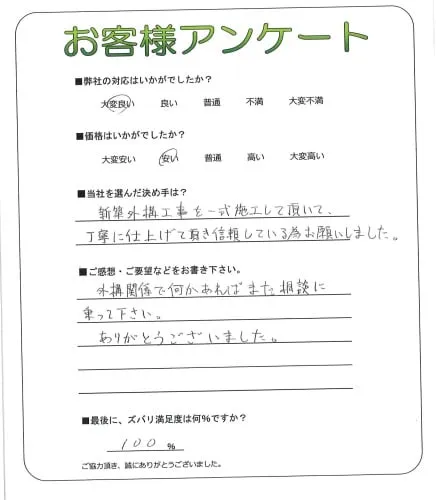 お客様アンケート
■弊社の対応はいかがでしたか？
大変良い 良い 普通 不満 大変不満
■価格はいかがでしたか？
大変安い 安い 普通 高い 大変高い
■当社を選んだ決め手は？
新築外構工事を一式施工して頂いて、
丁寧に仕上げて頂き信頼している為お願いしました。
■ご感想・ご要望などをお書き下さい。
外構関係で何かあればまた相談に
乗って下さい。
ありがとうございました。
■最後に、ズバリ満足度は何％ですか？
100 %
ご協力頂き、誠にありがとうございました。